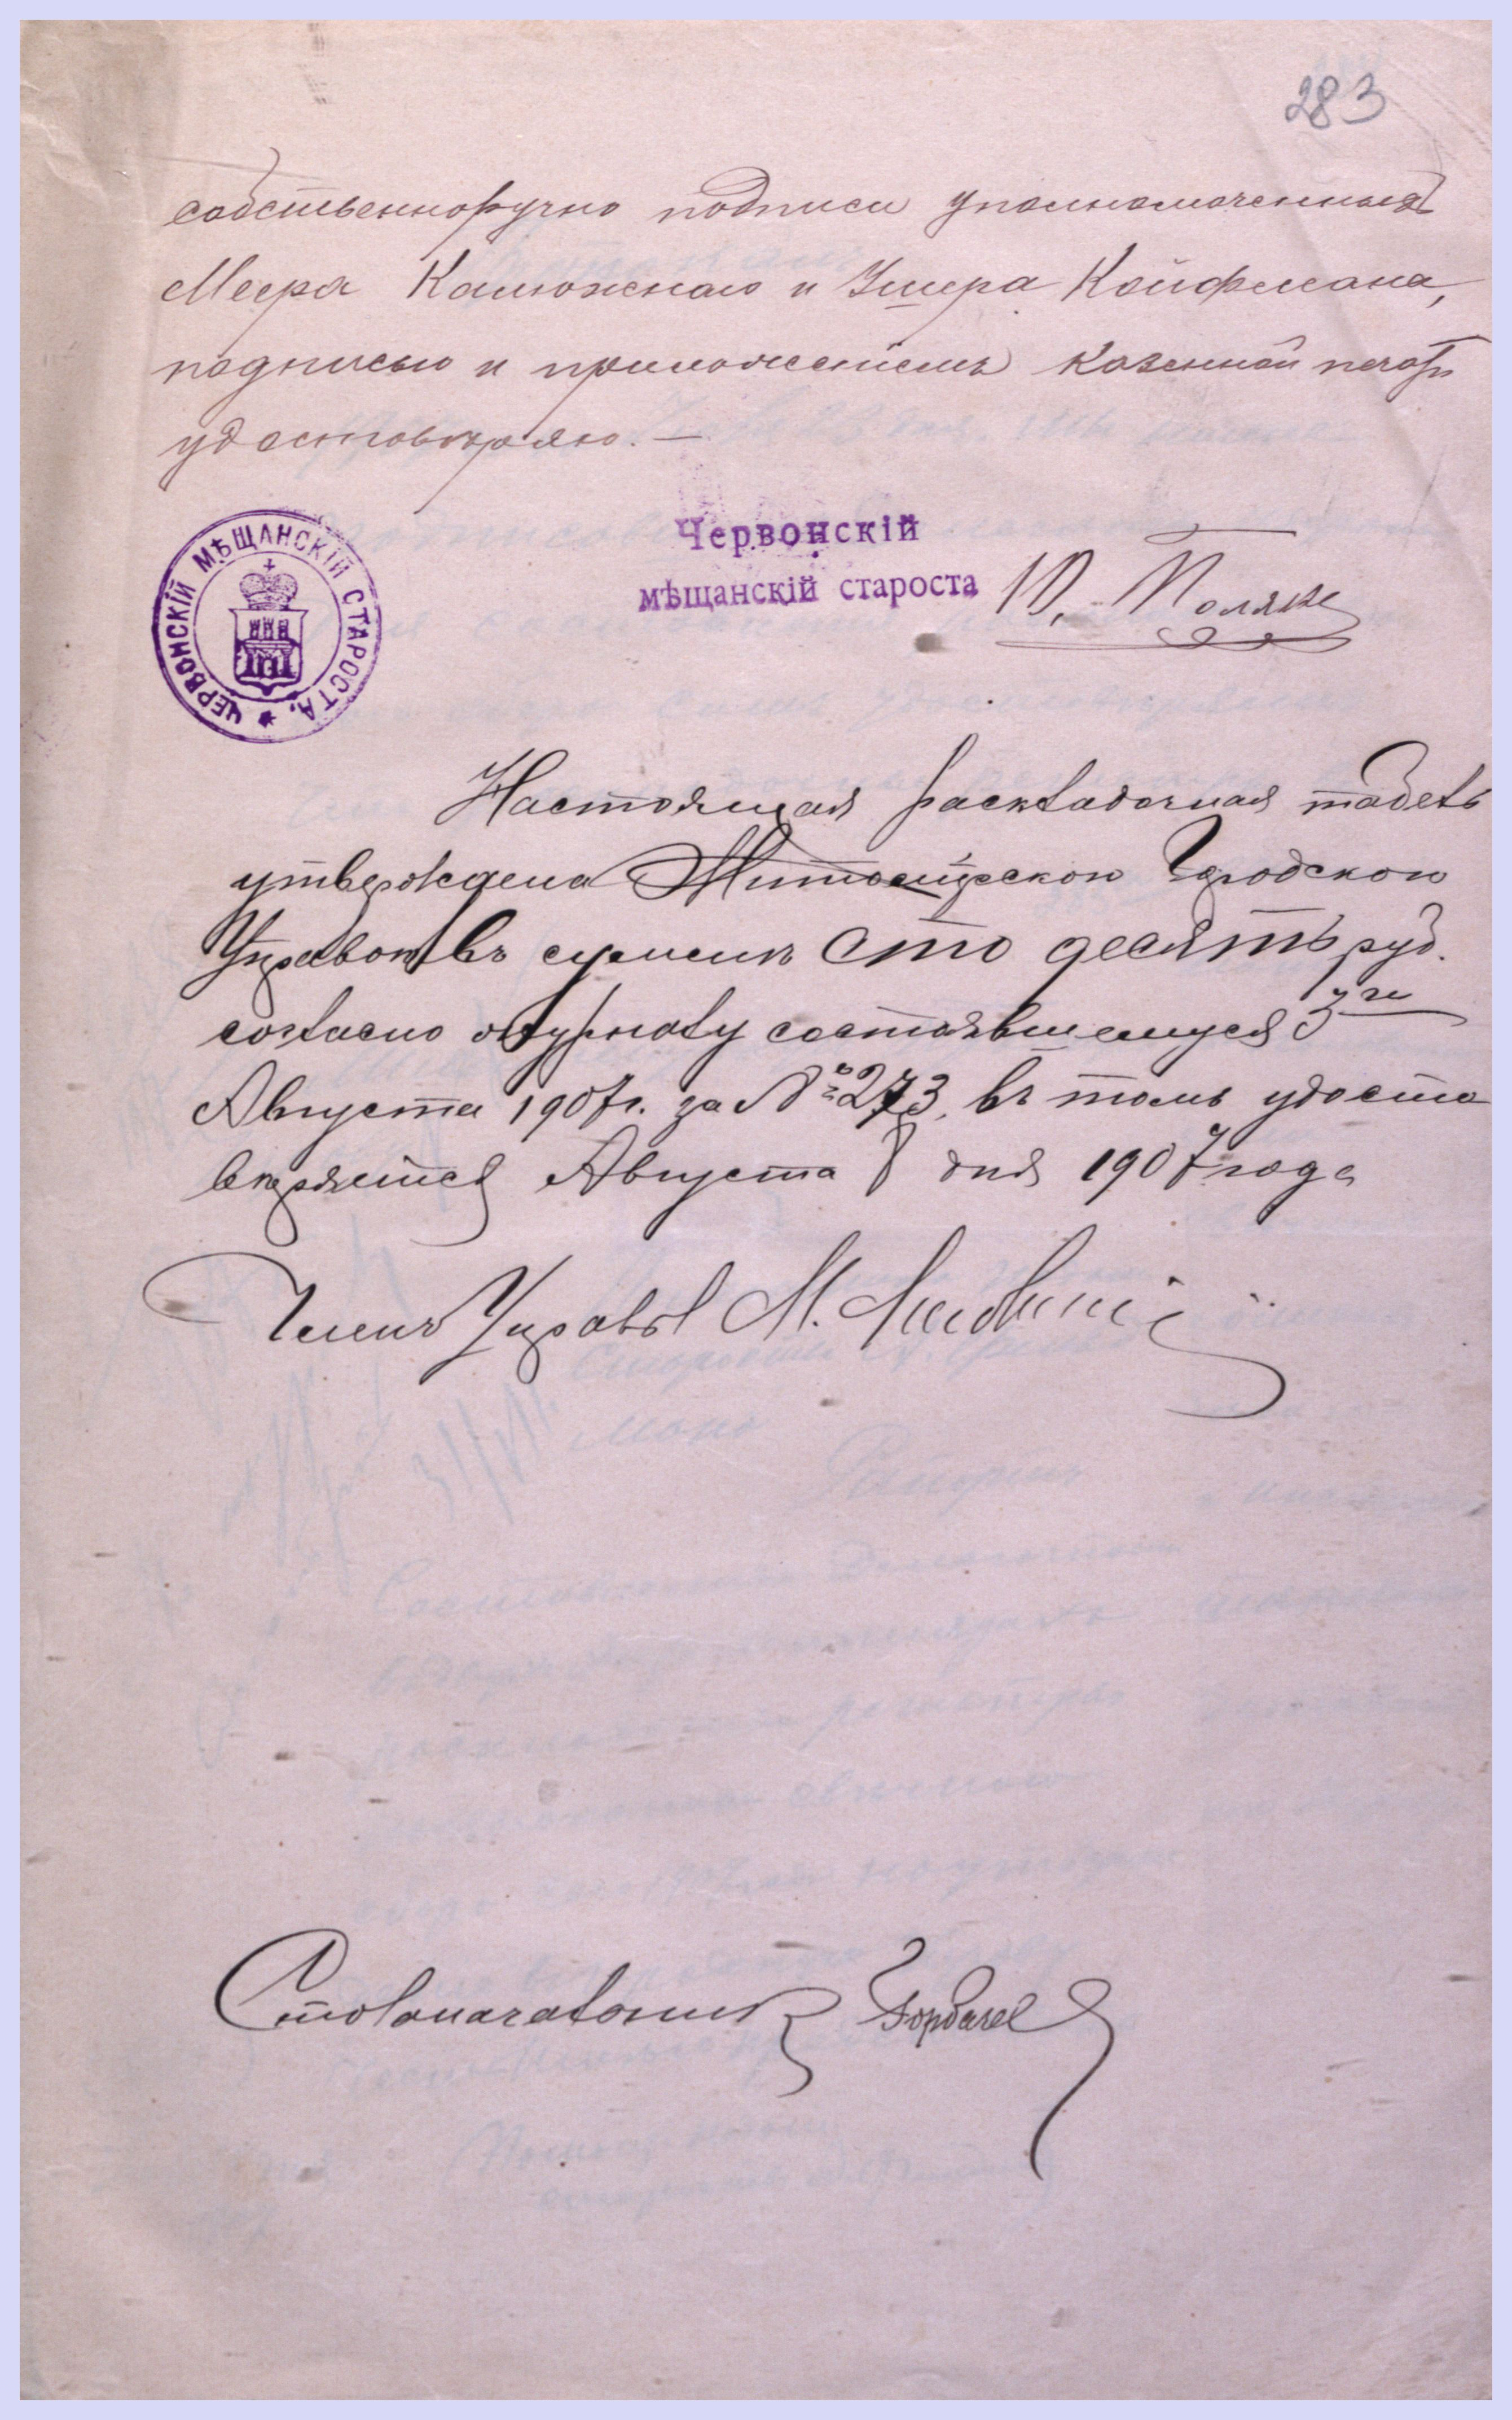 283
собственноручно подписи уполномоченныхъ
Меера Калюжнаго и Ушера Койфмана,
подписью и приложеніемъ казенной печати
удостовѣряю. —
ЧЕРВОНСКІЙ МѢЩАНСКІЙ СТАРОСТА.
Червонскій
мѣщанскій староста Ю. Полякъ
Настоящая раскладочная табель
утверждена Житомірскою Городскою
Управою въ суммѣ сто десять руб.
согласно журналу состоявшемуся 3го
Августа 1907г. за № 273, въ томъ удосто
вѣряется Августа 8 дня 1907 года
Членъ Управы М.
Столоначальникъ Горбачев